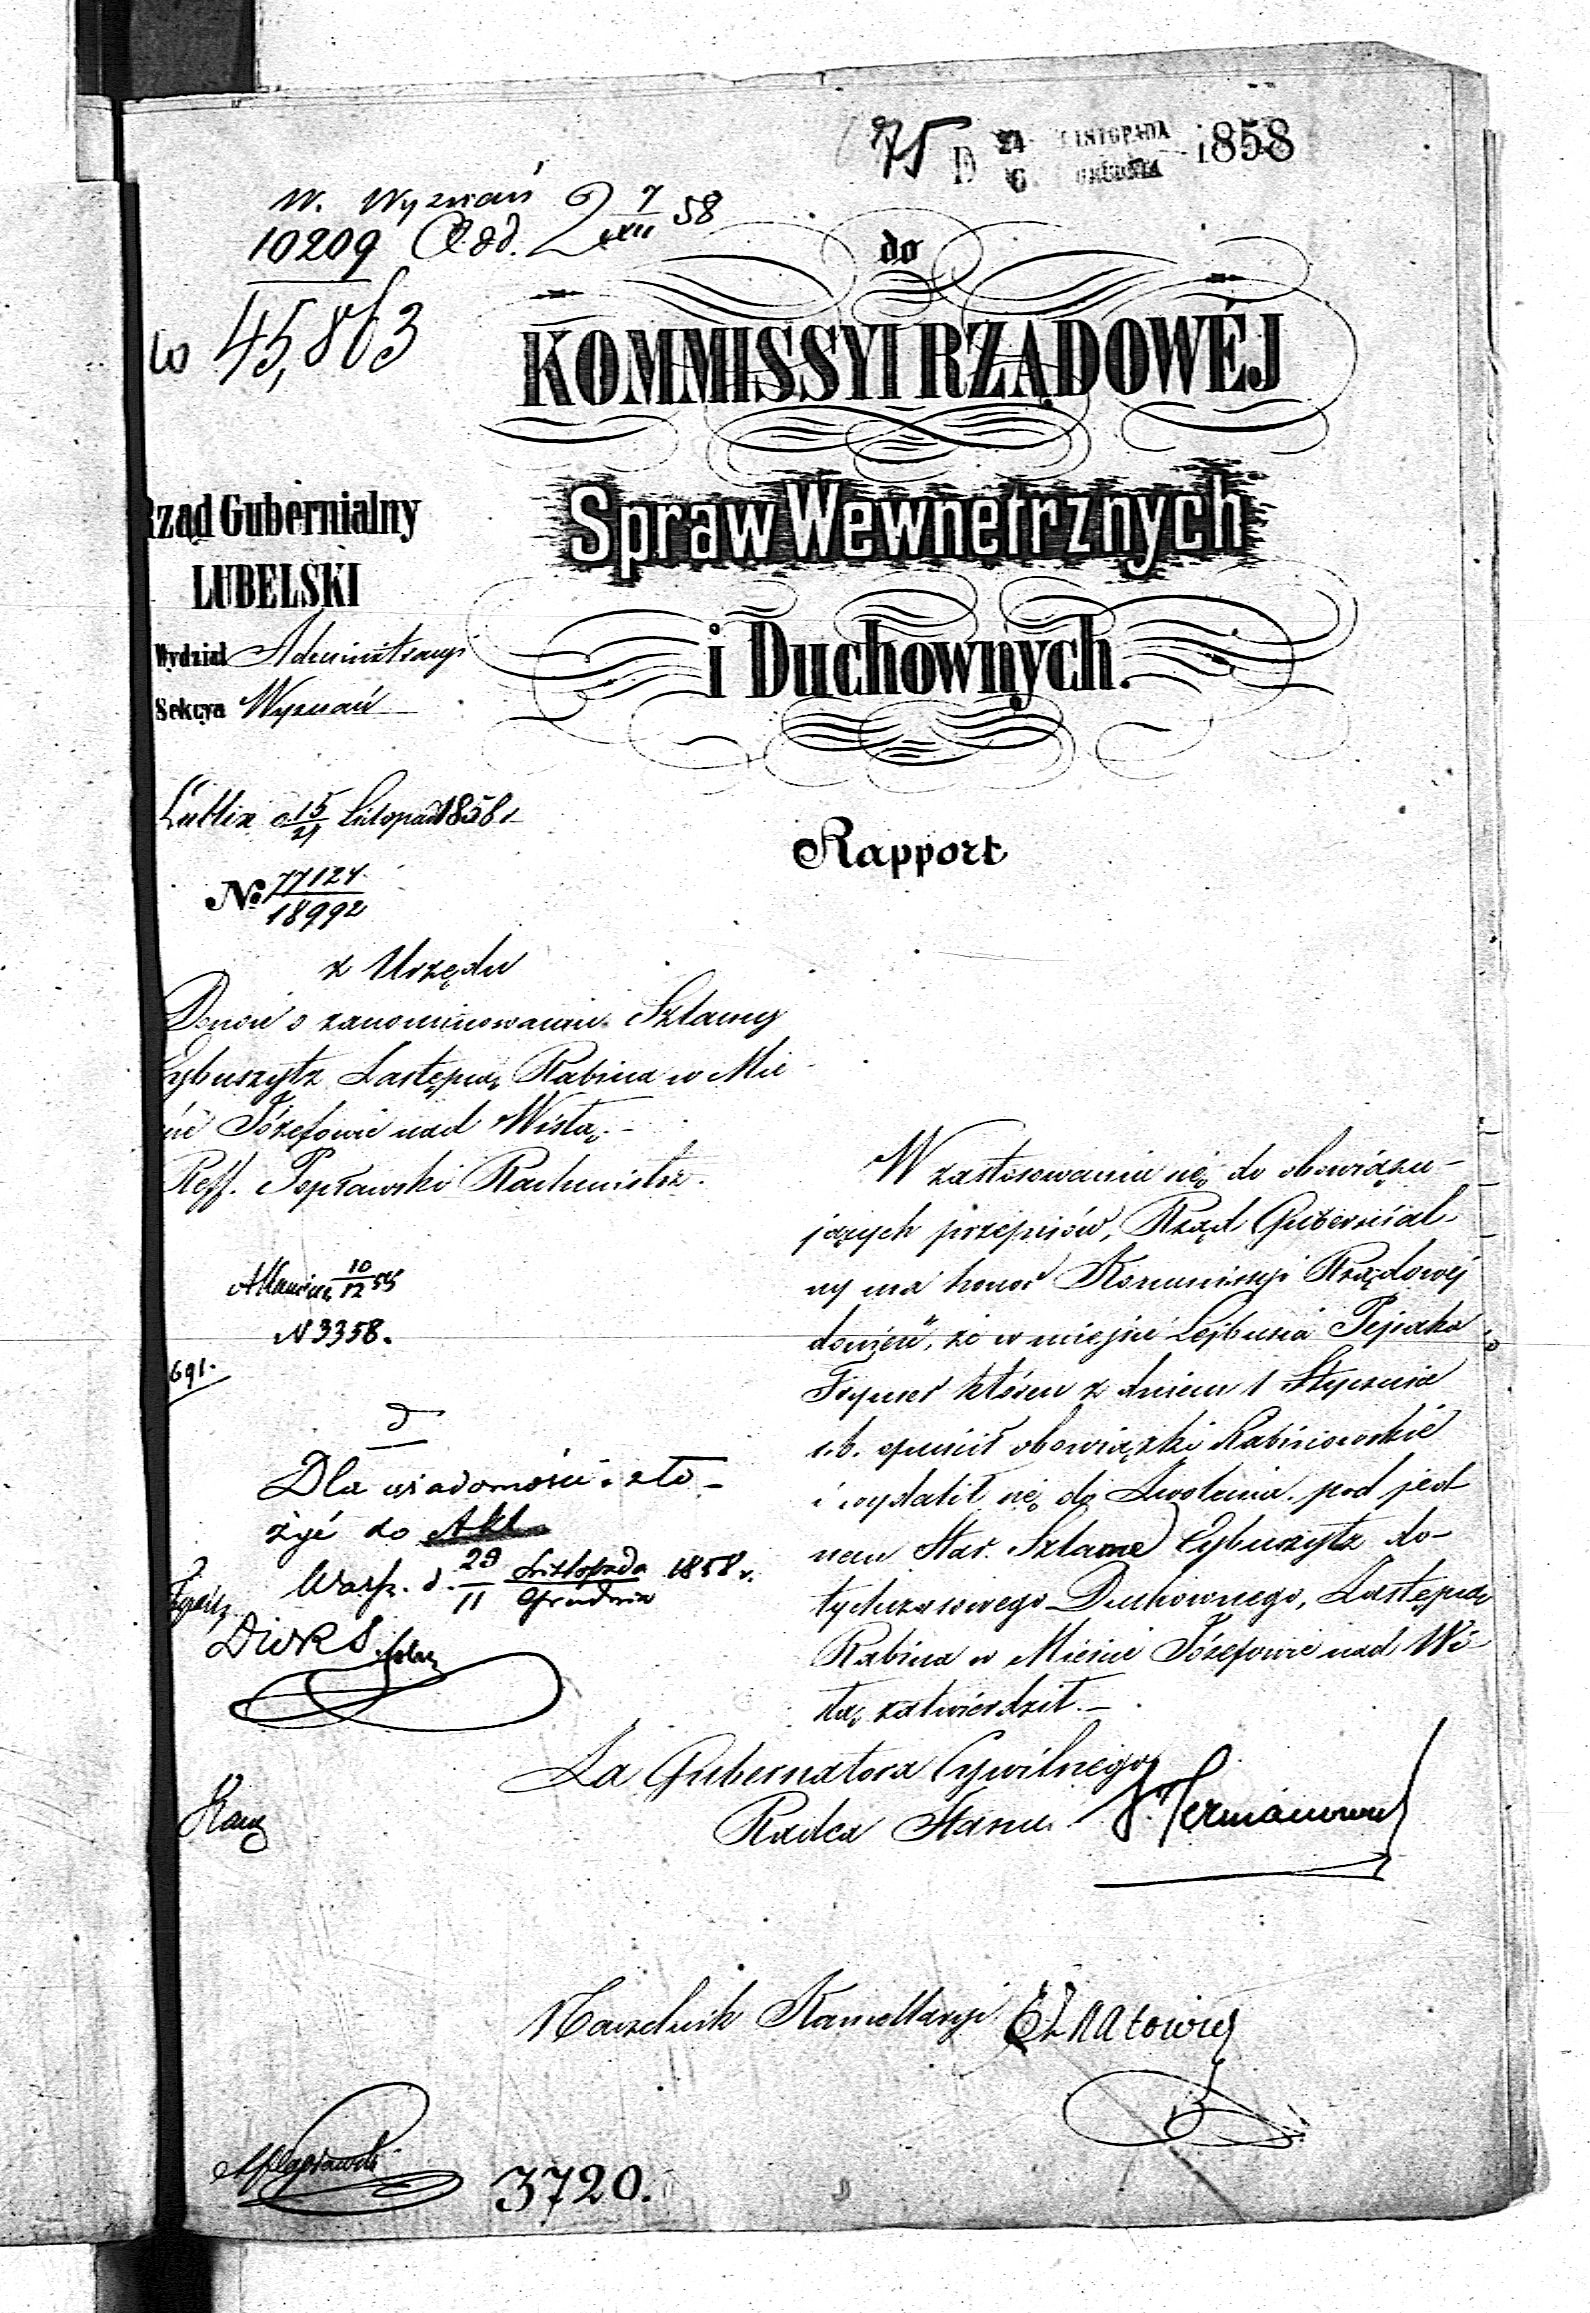 75
D 24 LISTOPADA 1858
6 GRUDNIA
W. Wyznań 7/XII 58
10209
45,863
do
KOMMISSYI RZĄDOWÉJ
Spraw Wewnetrznych
i Duchownych.
Rząd Gubernialny
LUBELSKI
Wydział Administracyj
Sekcya Wyznań
Lublin d. 15/27 Listopad 1858 r
Rapport
No 77124/18992
z Urzędu
Donosi o zanominowaniu Szlamy
Cybuszytz Zastępcą Rabina w Mie
ście Józefowie nad Wisłą.-
Reff. Popławski Rachmistrz.
W zastosowaniu się do obowiązu-
jących przepisów, Rząd Gubernial-
ny ma honor Kommissyi Rządowéj
donieść, że w miejsce Lejbusia Pejsaka
Frymer który z dniem 1 Stycznia
r.b. opuścił obowiązki Rabinowskie
i wydalił się do Zwolenia. pod jed
nem Star. Szlama Cybuszytz do-
tychczasowego Duchownego, Zastępcą
Rabina w Mieście Józefowie nad Wi-
słą zatwierdził.-
10/12 58
N 3358.
691.
Dla wiadomości i zło-
żyć do Akt
Warsz. d. 29 Listopada/11 Grudnia 1858 r.
Za Gubernatora Cywilnego
Radca Stanu
Naczelnik Kancellaryi
3720.